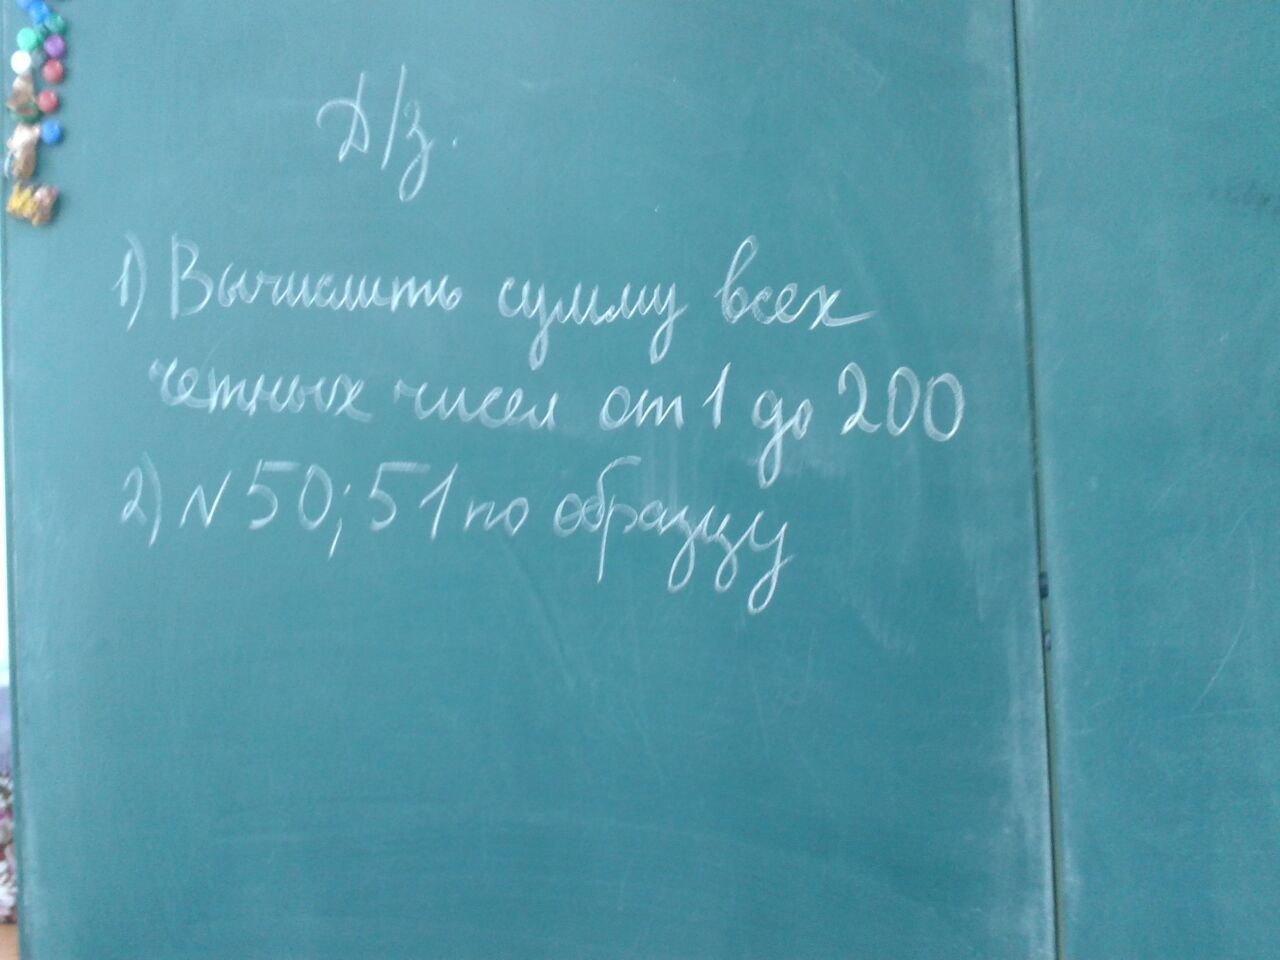 Д/з.
1) Вычислить сумму всех
четных чисел от 1 до 200
2) N 50; 51 по образцу